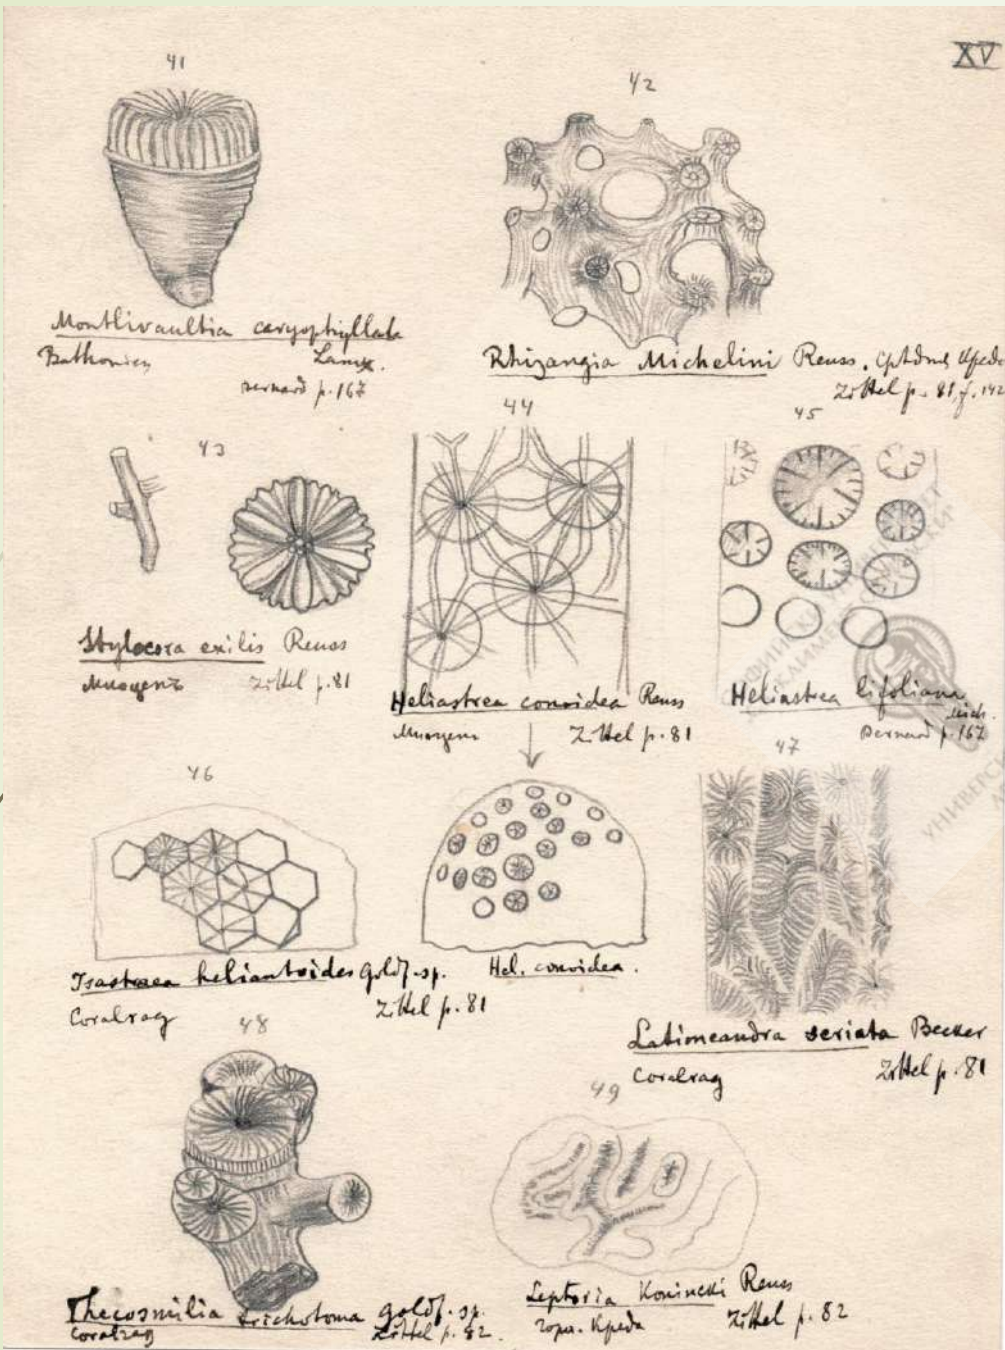 XV
41
Montlivaultia caryophyllata
Lamx.
Bernard p. 167
42
Rhizangia Michelini Reuss.
Zittel p. 81, f. 142
43
Stylocora exilis Reuss
Миоценъ Zittel p. 81
44
Heliastrea conoidea Reuss
Миоценъ Zittel p. 81
Hel. conoidea.
45
Heliastrea lifoliana
Mich.
Bernard p. 167
46
Isastraea heliantoides Goldf. sp.
Coralrag Zittel p. 81
47
Latimeandra seriata Becker
Coralrag Zittel p. 81
48
Thecosmilia trichotoma Goldf. sp.
Coralrag Zittel p. 82.
49
Leptoria Konincki Reuss
горн. Креда Zittel p. 82